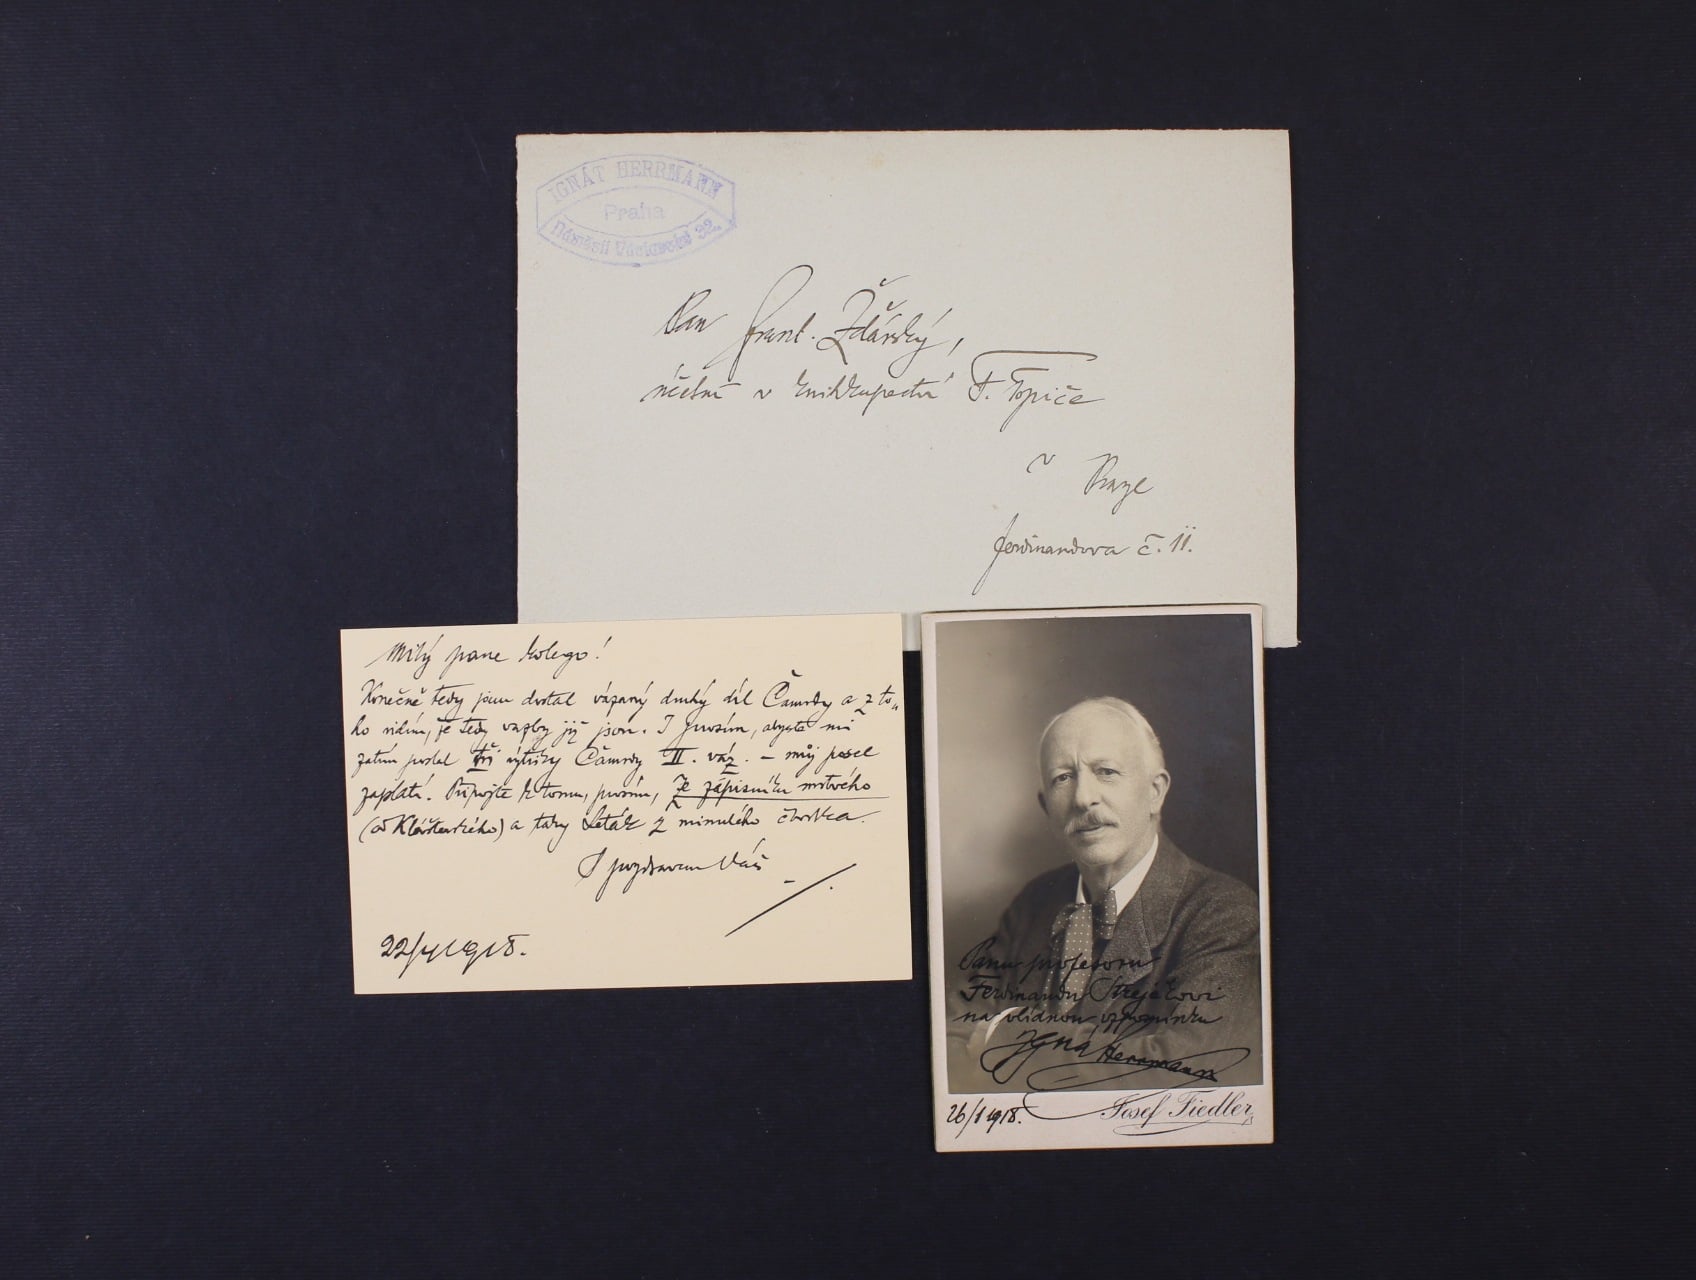 IGNÁT HERRMANN
Praha
Náměstí Václavské 32.
Pan Frant. Žďárský,
účetní v knihkupectví F. Topiče
v Praze
Ferdinandova č. 11.
Milý pane kolego!
Konečně tedy jsem dostal vázaný druhý díl Čamrdy a z to„
ho vidím, že tedy vazby již jsou. I prosím, abyste mi
zatím poslal tři výtisky Čamrdy II. váz. – můj posel
zaplatí. Připojte k tomu, prosím, Ze zápisníku mrtvého
(od Klášterského) a taky Leták z minulého čtvrtka.
S pozdravem Váš
22/ 1918.
Panu profesoru
Ferdinandu Strejčkovi
na vlídnou vzpomínku
Ignát Herrmann
26/1 1918.
Josef Fiedler